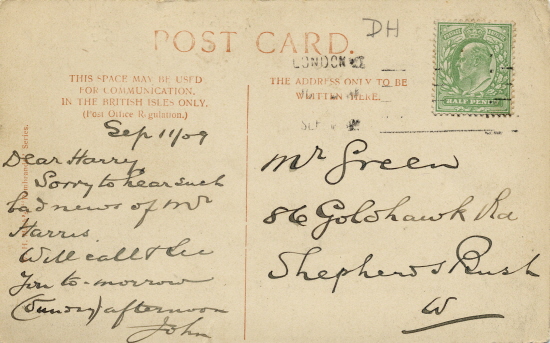 DH
POST CARD.
THIS SPACE MAY BE USED
FOR COMMUNICATION.
IN THE BRITISH ISLES ONLY.
(Post Office Regulation.)
THE ADDRESS ONLY TO BE
WRITTEN HERE.
LONDON
HALF PENNY
Sep 11/09
Dear Harry
Sorry to hear such
bad news of Mr
Harris.
Will call & see
you to-morrow
(Sunday) afternoon
John
Mr Green
86 Goldhawk Rd
Shepherds Bush
W
Series.